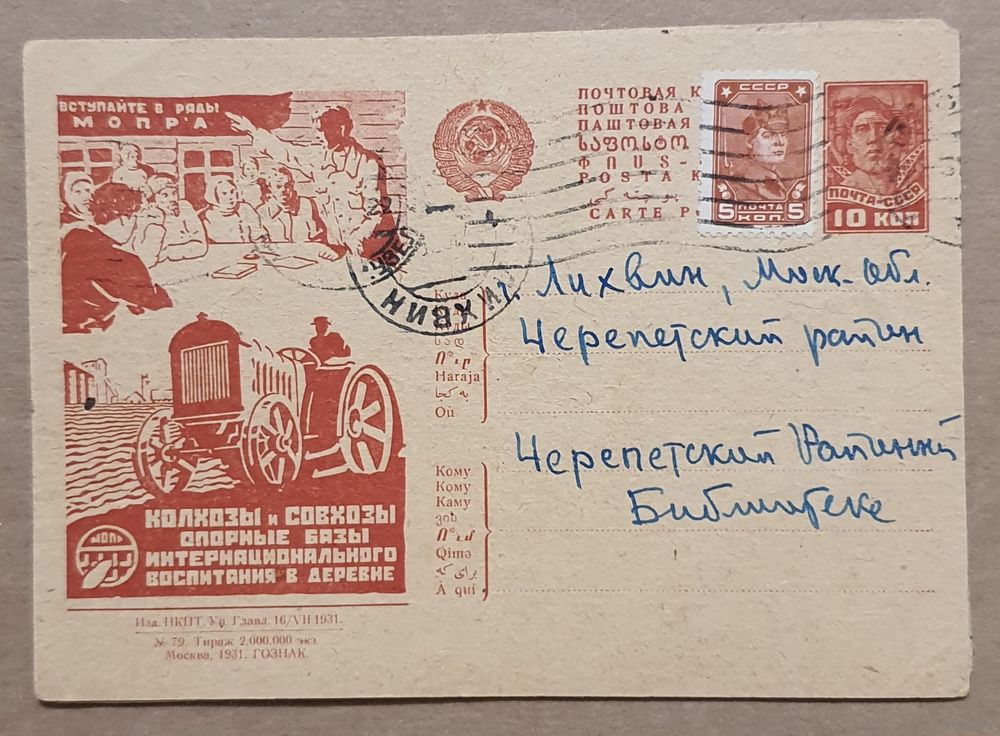 ВСТУПАЙТЕ В РЯДЫ
МОПР'А
КОЛХОЗЫ и СОВХОЗЫ
ОПОРНЫЕ БАЗЫ
ИНТЕРНАЦИОНАЛЬНОГО
ВОСПИТАНИЯ В ДЕРЕВНЕ
МОПР
Изд. НКПТ. Уп. Главл. 16/VII 1931.
№ 79. Тираж 2.000.000 экз.
Москва, 1931. ГОЗНАК.
ПОЧТОВАЯ К
ПОШТОВА
ПАШТОВАЯ
ՓՈՍՏ-
POSTA K
CARTE P
СССР
5 ПОЧТА 5
КОП.
ПОЧТА-СССР
10 КОП
г. Лихвин, Моск. обл.
Черепетский район
Черепетский Районный
Библиотеке
Куда
სად
Ո՞ւր
Haraja
به کجا
Où
Кому
Кому
Каму
ვის
Ո՞ւմ
Qimə
برای که
À qui